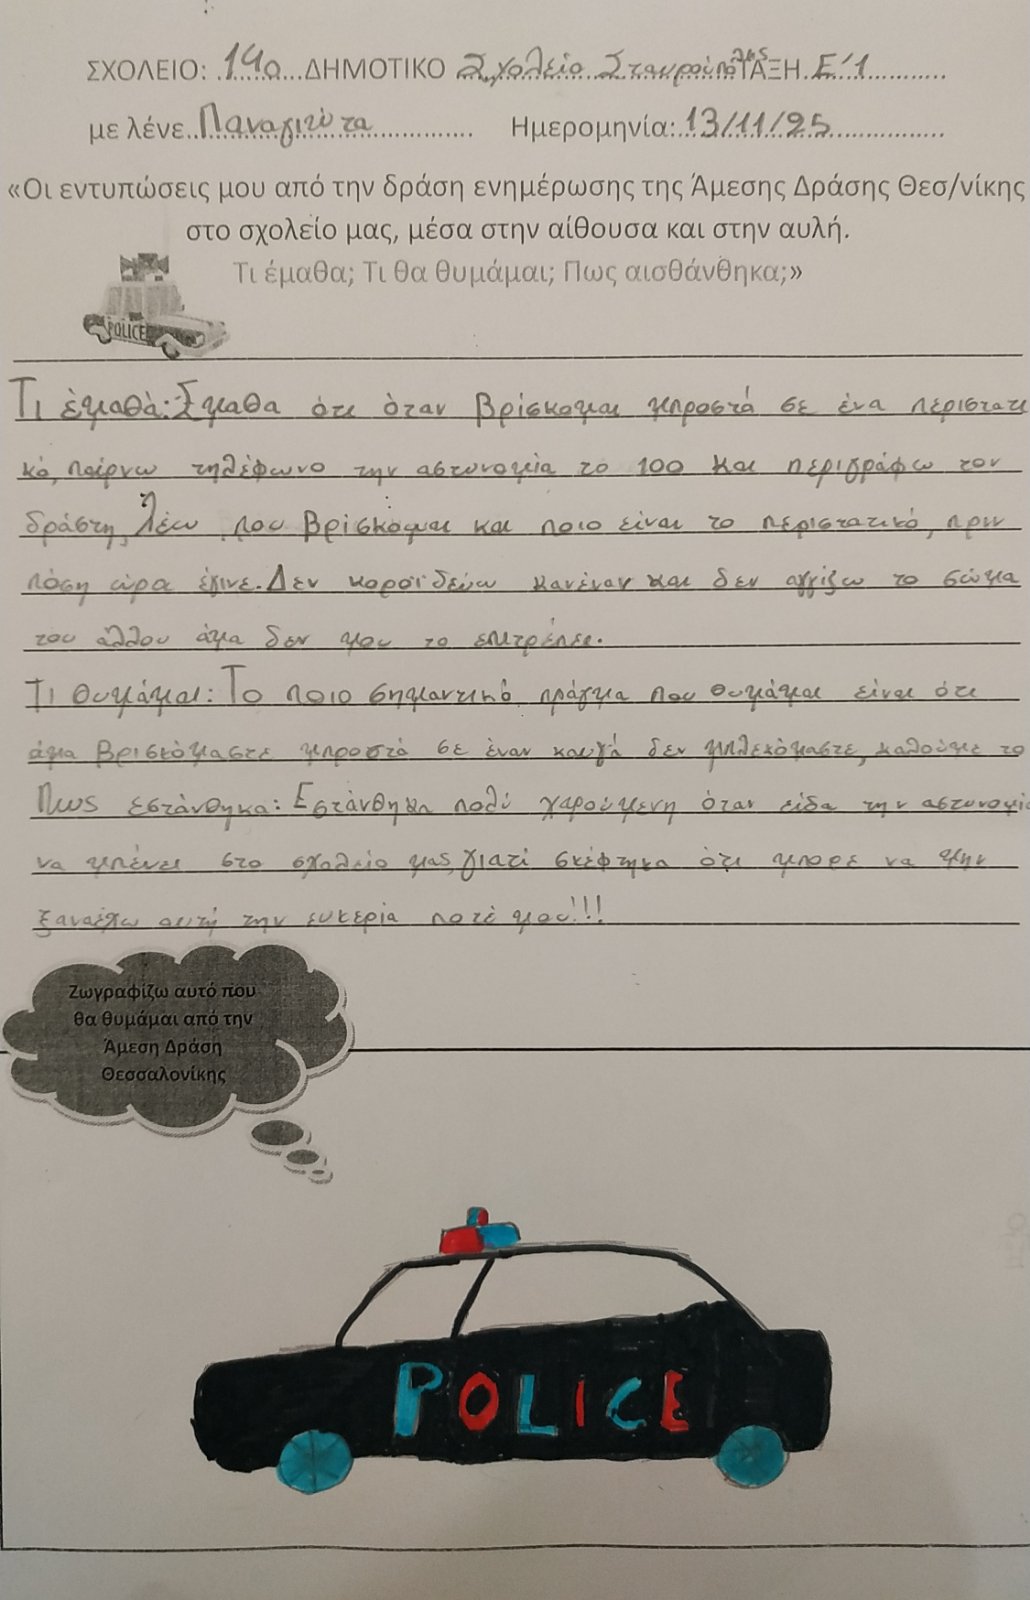 ΣΧΟΛΕΙΟ: 14ο ΔΗΜΟΤΙΚΟ Σχολείο Σταυρούπολης ΤΑΞΗ Ε'1
με λένε Παναγιώτα Ημερομηνία: 13/11/25
«Οι εντυπώσεις μου από την δράση ενημέρωσης της Άμεσης Δράσης Θεσ/νίκης
στο σχολείο μας, μέσα στην αίθουσα και στην αυλή.
Τι έμαθα; Τι θα θυμάμαι; Πως αισθάνθηκα;»
POLICE
Τι έμαθα: Έμαθα ότι όταν βρίσκομαι μπροστά σε ένα περιστατι
κό, παίρνω τηλέφωνο την αστυνομία το 100 και περιγράφω τον
δράστη, λέω που βρίσκομαι και ποιο είναι το περιστατικό, πριν
πόση ώρα έγινε. Δεν κοροϊδεύω κανέναν και δεν αγγίζω το σώμα
του άλλου άμα δεν μου το επιτρέπει.
Τι θυμάμαι: Το ποιο σημαντικό πράγμα που θυμάμαι είναι ότι
άμα βρισκόμαστε μπροστά σε έναν καυγά δεν μπλεκόμαστε, καλούμε το
Πως εστάνθηκα: Εστάνθηκα πολύ χαρούμενη όταν είδα την αστυνομία
να μπένει στο σχολείο μας, γιατί σκέφτηκα ότι μπορε να μην
ξαναέχω αυτή την ευκερία ποτέ μου!!!
Ζωγραφίζω αυτό που
θα θυμάμαι από την
Άμεση Δράση
Θεσσαλονίκης
POLICE